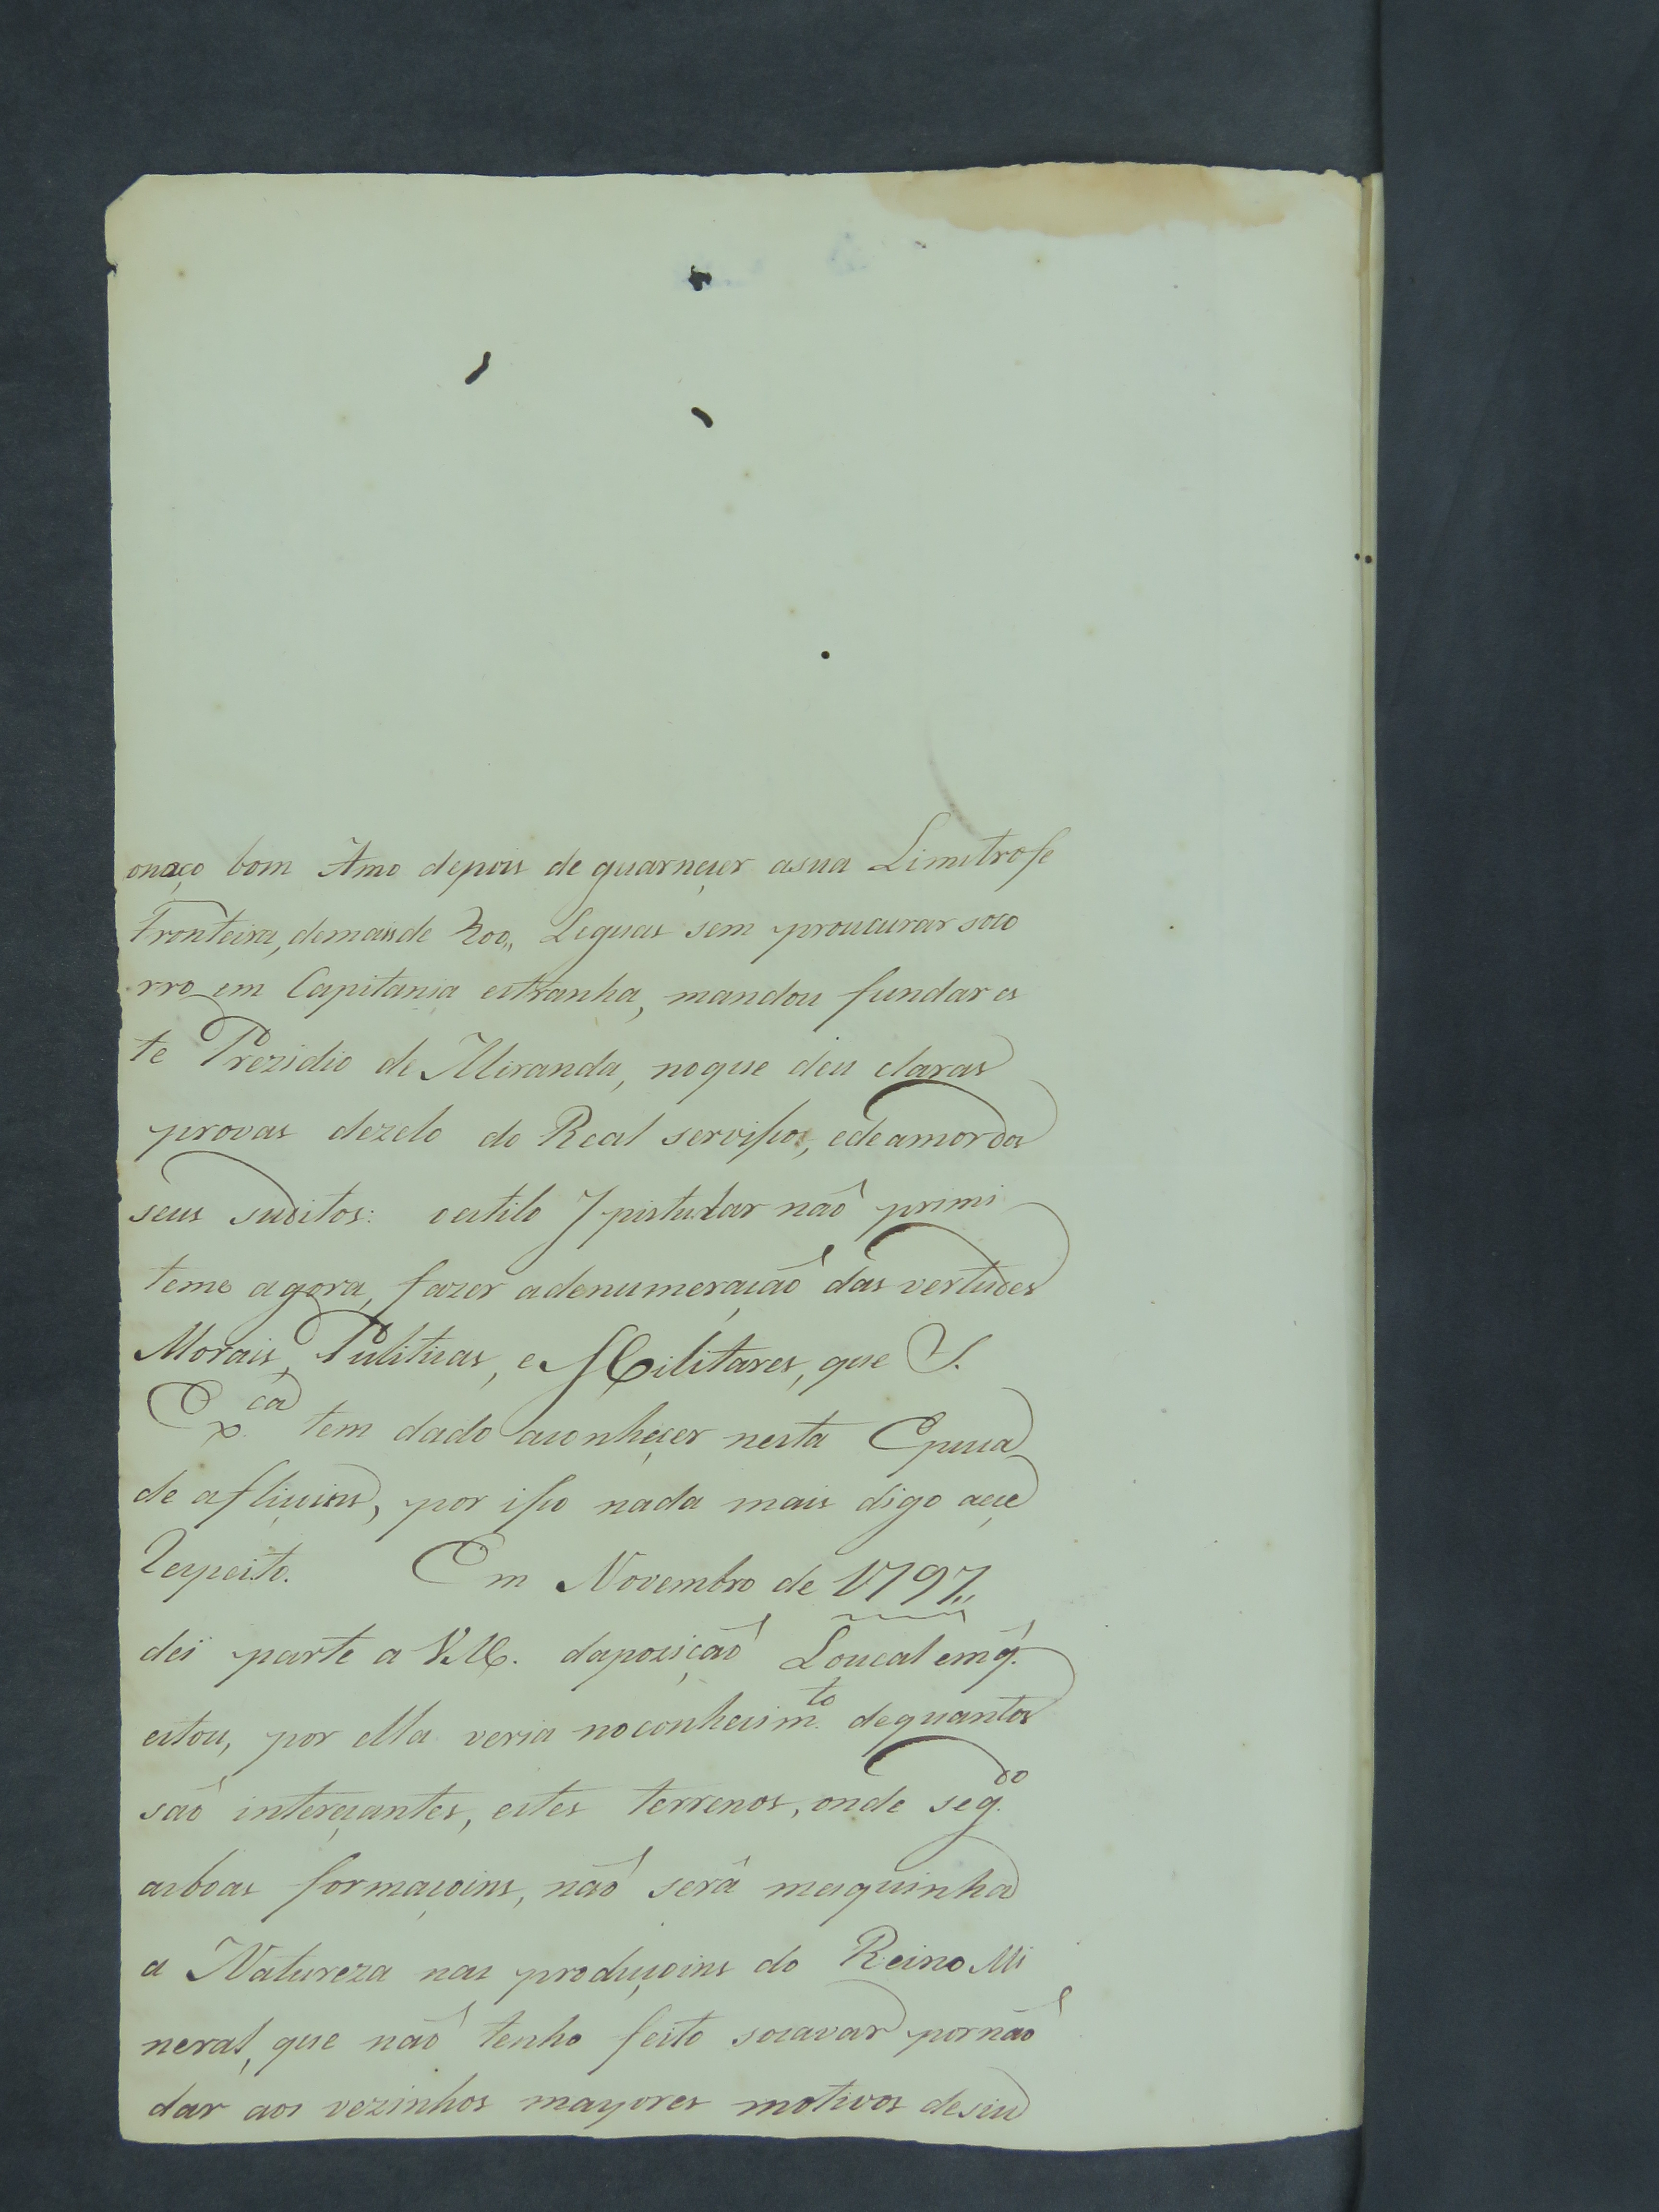 onaço bom Amo depois de guarneçer asua Limitrofe
Fronteira, demaisde 200,, Leguas sem proucurar soco
rro em Capitania estranha, mandou fundar es
te Prezidio de Miranda, noque deu claras
provas dezelo do Real servisso, edeamor dos
seus suditos: oestilo Ipistular naõ primi
teme agora, fazer adenumeraçaõ das vertudes
Morais, Puliticas, e Militares, que S.
Ex.ca tem dado aconheçer nesta Epuca
de afliçoins, por isso nada mais digo aeçe
Respeito. Em Novembro de 1797,,
dei parte a V.M. dapoziçaõ Loucal emq.
estou, por ella veria noconhecim.to dequantos
saõ intereçantes, estes terrenos, onde seg.do
asboas formaçoins, naõ será mesquinha
a Natureza nas produçoins do Reino Mi
neral, que naõ tenho feito socavar pornaõ
dar aos vezinhos mayores motivos desiu